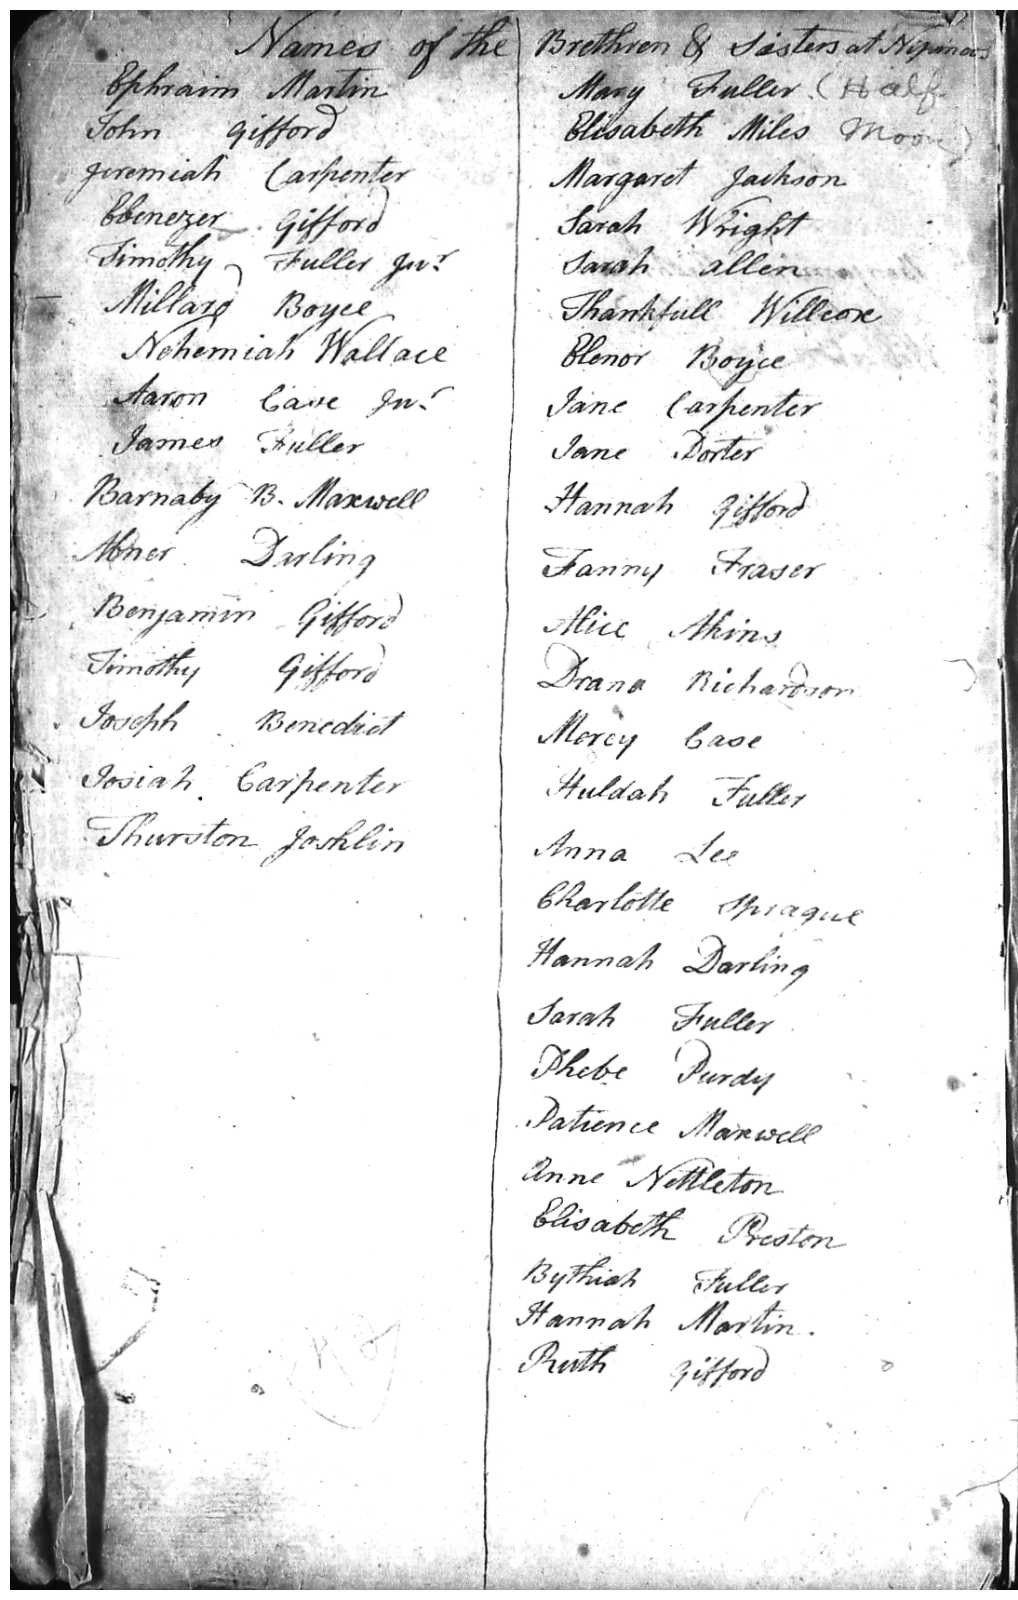 Names of the Brethren & Sisters at
Ephraim Martin
John Gifford
Jeremiah Carpenter
Ebenezer Gifford
Timothy Fuller Junr
Millard Boyce
Nehemiah Wallace
Aaron Case Junr
James Fuller
Barnaby B. Maxwell
Abner Darling
Benjamin Gifford
Timothy Gifford
Joseph Benedict
Josiah Carpenter
Thurston Joshlin
Mary Fuller (Half
Elisabeth Miles Moon)
Margaret Jackson
Sarah Wright
Sarah allen
Thankfull Willcox
Elenor Boyce
Jane Carpenter
Jane Porter
Hannah Gifford
Fanny Fraser
Alice Akins
Drana Richardson
Mercy Case
Huldah Fuller
Anna Lee
Charlotte Sprague
Hannah Darling
Sarah Fuller
Phebe Purdy
Patience Maxwell
Anne Nettleton
Elisabeth Preston
Bythiah Fuller
Hannah Martin.
Ruth Gifford